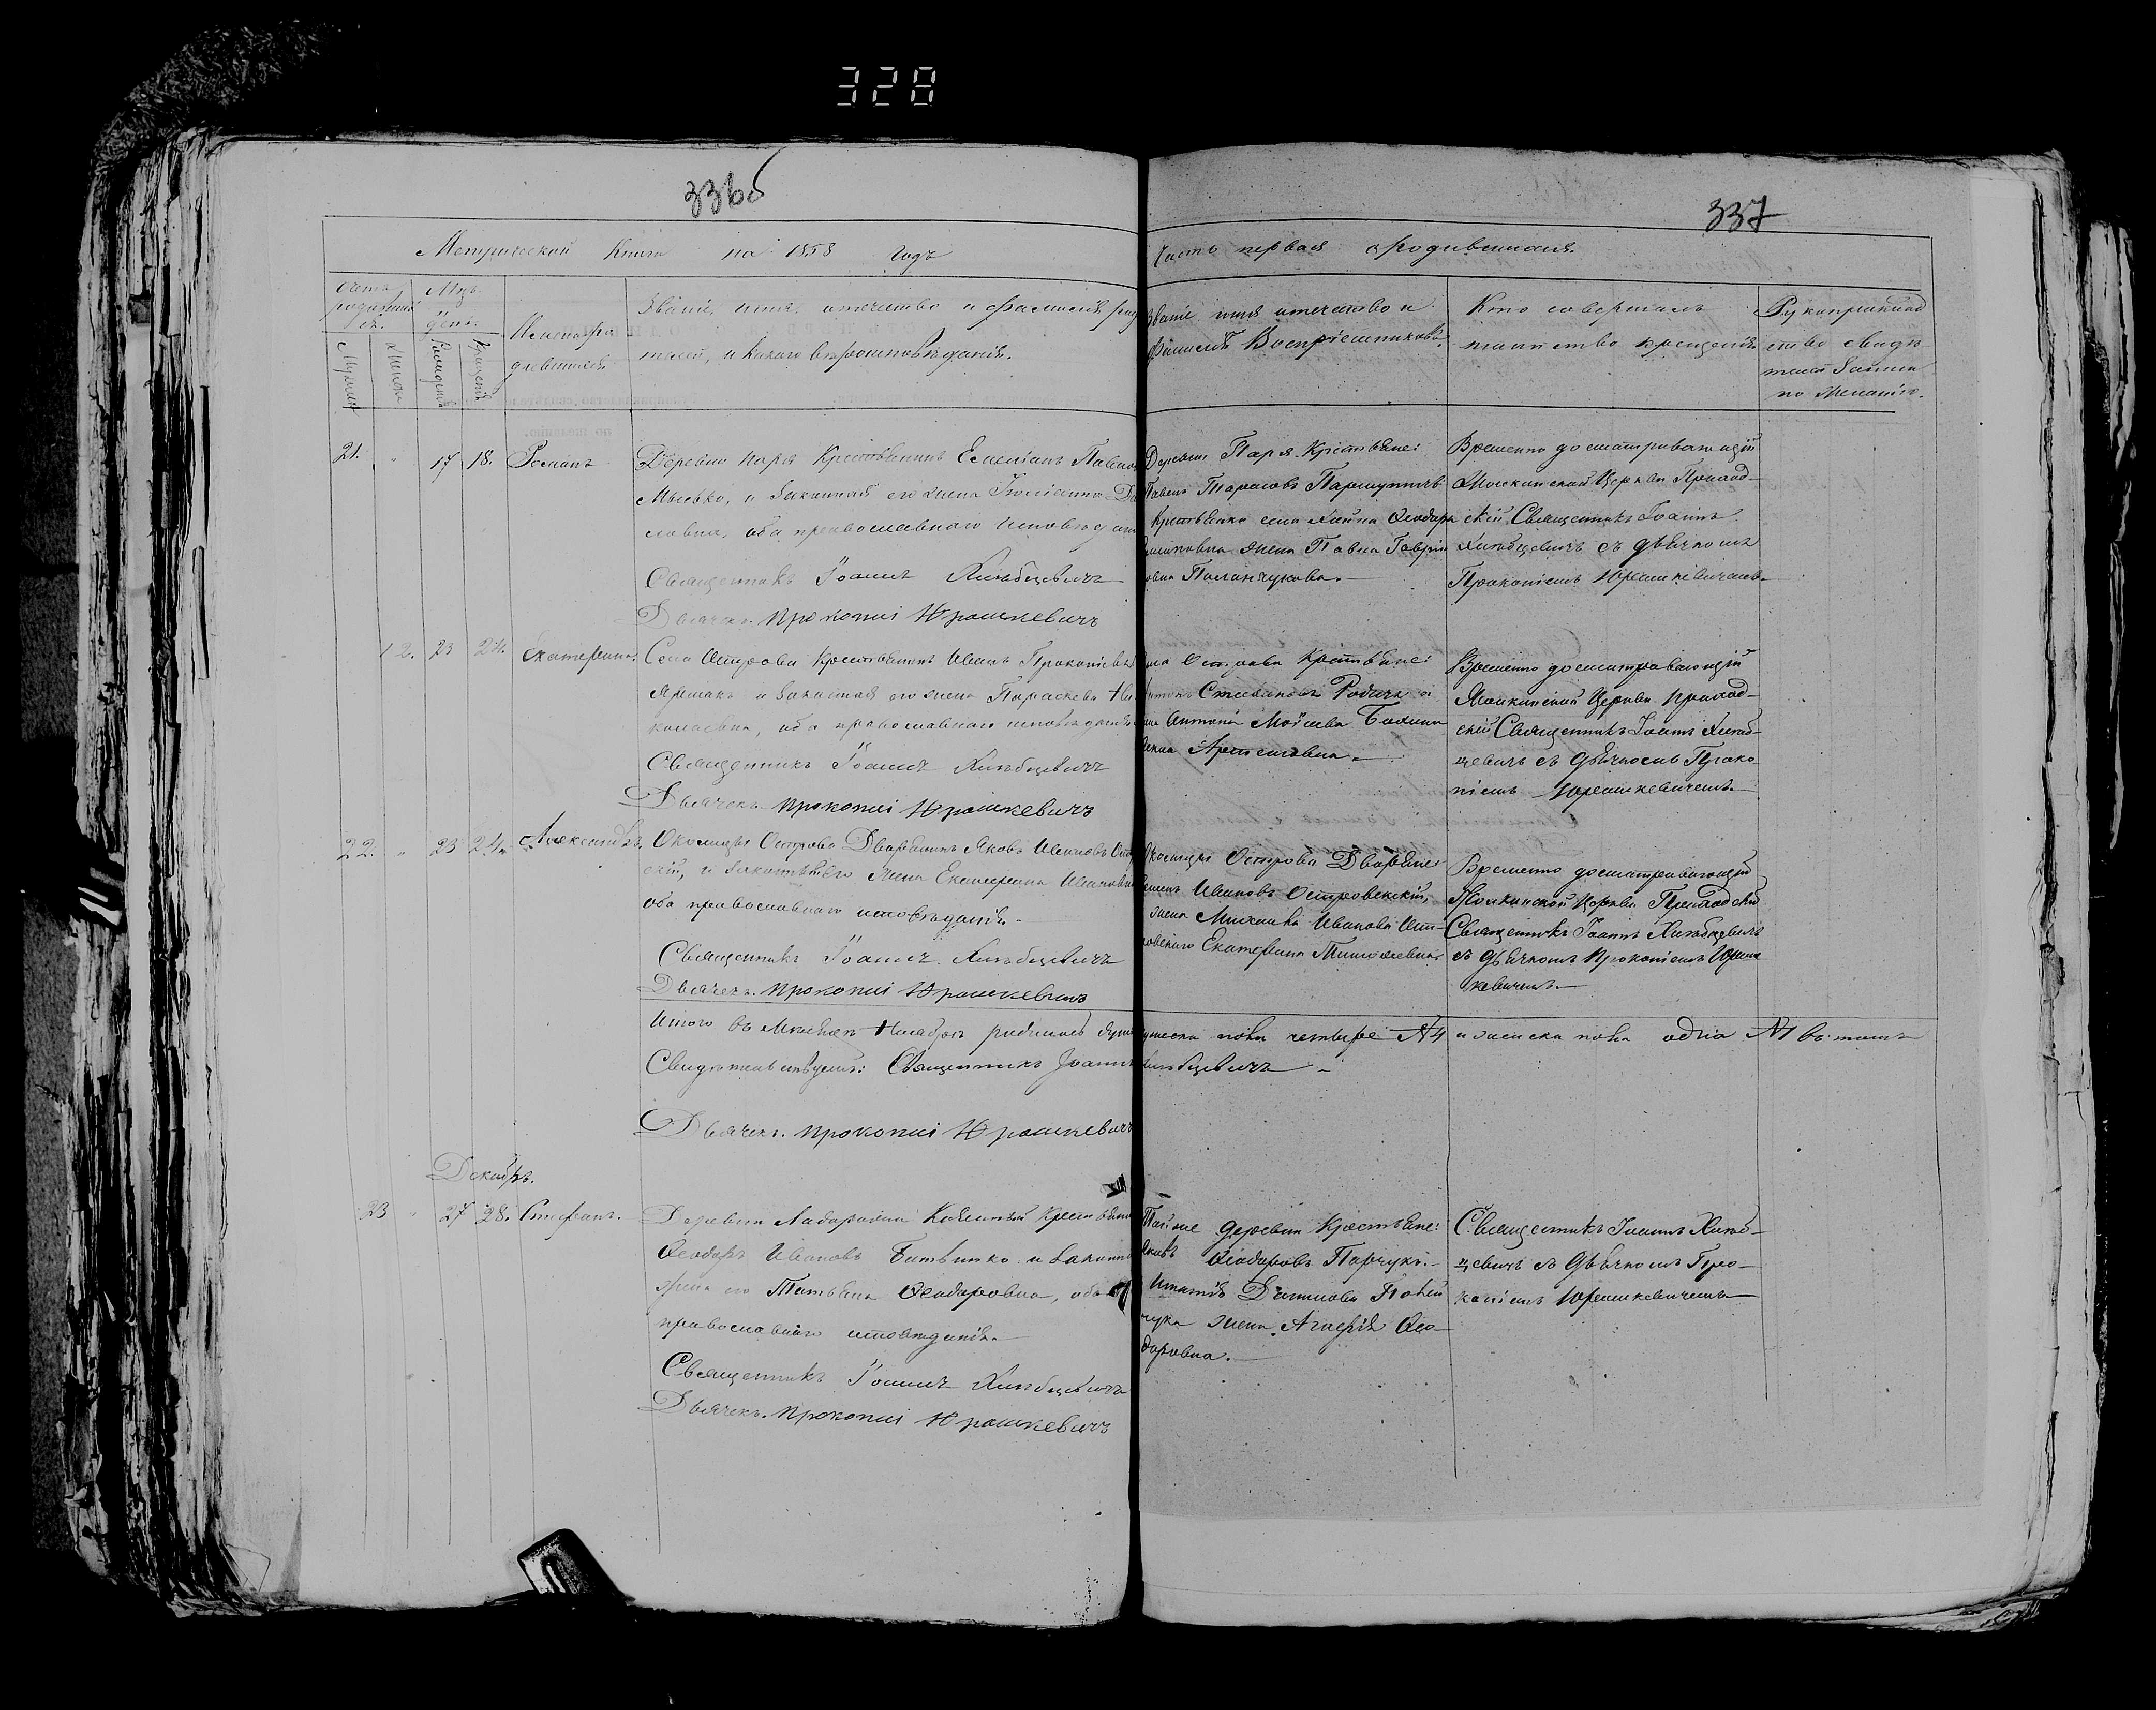 328
336б
337
Метрической Книги на 1858 годъ
Часть первая о родившихся.
Счетъ родившихся.
Мужска
Женска
Мцъ и день.
Рожденія
Крещенія
Имена родившихся
Званіе, имя, отечество и фамилія роди
телей, и какого вѣроисповѣданія.
Званіе имя отечество и
фамилія Воспріемниковъ.
Кто совершалъ
таинство крещенія.
Рукоприклад
ство свидѣ
телей записи
по желанію.
21. " 17 18. Романъ
Деревни Паря Крестьянинъ Емеліанъ Павлов
и законная его жена Іуліанна
оба православнаго исповѣдані
Священникъ Іоаннъ Хлѣбцевичъ
Дьячекъ Прокопій Юрашкевичъ
Деревни Паря Крестьяне:
Павелъ Тарасовъ Паршутичъ
Павла Гаврии
Временно досматривающій
Молкинской Церкви Приход-
скій Священникъ Іоаннъ
Хлѣбцевичъ съ дьячкомъ
Прокопіемъ Юрашкевичемъ.
12. 23 24. Екатерина.
Села Острова Крестьянинъ Иванъ Прокопіевъ
Ярмакъ и законная его жена Параскева Ни
колаевна, оба православнаго исповѣданія
Священникъ Іоаннъ Хлѣбцевичъ
Дьячекъ Прокопій Юрашкевичъ
Острова Крестьяне:
Стефановъ Родичъ и
Антона Моисева
Временно досматривающій
Молкинской Церкви приход-
скій Священникъ Іоаннъ Хлѣб-
цевичъ съ дьячкомъ Проко
піемъ Юрашкевичемъ.
22. " 23 24. Александръ.
Околицы Острова Дворянинъ Яковъ Ивановъ Ост
скій, и законная его жена Екатерина Ивановна
оба православнаго исповѣданія.
Священникъ Іоаннъ Хлѣбцевичъ
Дьячекъ Прокопій Юрашкевичъ
Околицы Острова Дворяне:
Ивановъ Островскій,
жена Михаила Иванова Ост-
ровскаго Екатерина
Временно досматривающій
Молкинской Церкви Приходскій
Священникъ Іоаннъ Хлѣбцевичъ
съ дьячкомъ Прокопіемъ Юраш
кевичемъ.
Итого въ Мѣсяцѣ Ноябрѣ родилось
мужеска пола четыре №4 и женска пола одна №1 въ томъ
Свидѣтельствуемъ: Священникъ Іоаннъ Хлѣбцевичъ
Дьячекъ Прокопій Юрашкевичъ
Декабрь.
23 " 27 28. Стефанъ.
Деревни Казенный Крестьянинъ
Ѳеодоръ Ивановъ и законна
жена его Татьяна Ѳеодоровна, оба
православнаго исповѣданія.
Священникъ Іоаннъ Хлѣбцевичъ
Дьячекъ Прокопій Юрашкевичъ
Той же деревни Крестьяне:
Яковъ Ѳеодоровъ Парчукъ.
Игнатія
чука жена Ѳео-
доровна.
Священникъ Іоаннъ Хлѣб-
цевичъ съ дьячкомъ Про-
копіемъ Юрашкевичемъ